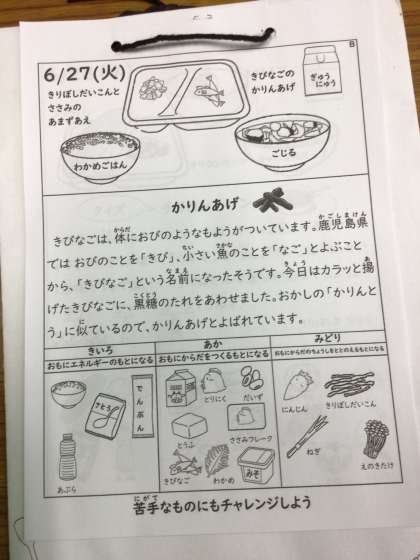 B
6/27(火)
きりぼしだいこんと
ささみの
あまずあえ
きびなごの
かりんあげ
ぎゅう
にゅう
わかめごはん
ごじる
かりんあげ
きびなごは、体におびのようなもようがついています。鹿児島県
では おびのことを「きび」、小さい魚のことを「なご」とよぶこと
から、「きびなご」という名前になったそうです。今日はカラッと揚
げたきびなごに、黒糖のたれをあわせました。おかしの「かりんと
う」に似ているので、かりんあげとよばれています。
きいろ
おもにエネルギーのもとになる
あか
おもにからだをつくるもとになる
みどり
おもにからだのちょうしをととのえるもとになる
さとう
でんぷん
あぶら
とりにく
だいず
とうふ
ささみフレーク
きびなご
わかめ
みそ
にんじん
きりぼしだいこん
ねぎ
えのきたけ
苦手なものにもチャレンジしよう